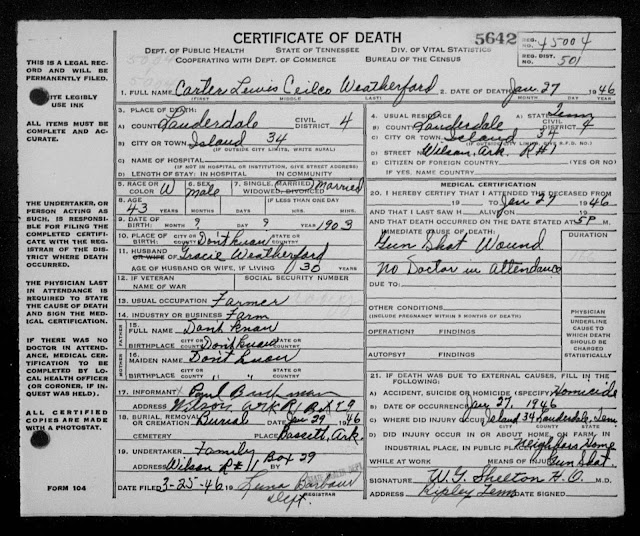 CERTIFICATE OF DEATH
5642
REG. NO. 45004
DEPT. OF PUBLIC HEALTH STATE OF TENNESSEE DIV. OF VITAL STATISTICS
REG. DIST. 501
COOPERATING WITH DEPT. OF COMMERCE BUREAU OF THE CENSUS
THIS IS A LEGAL RECORD AND WILL BE PERMANENTLY FILED.
WRITE LEGIBLY USE INK
ALL ITEMS MUST BE COMPLETE AND ACCURATE.
THE UNDERTAKER, OR PERSON ACTING AS SUCH, IS RESPONSIBLE FOR FILING THE COMPLETED CERTIFICATE WITH THE REGISTRAR OF THE DISTRICT WHERE DEATH OCCURRED.
THE PHYSICIAN LAST IN ATTENDANCE IS REQUIRED TO STATE THE CAUSE OF DEATH AND SIGN THE MEDICAL CERTIFICATION.
IF THERE WAS NO DOCTOR IN ATTENDANCE, MEDICAL CERTIFICATE TO BE COMPLETED BY LOCAL HEALTH OFFICER (OR CORONER, IF INQUEST WAS HELD).
ALL CERTIFIED COPIES ARE MADE WITH A PHOTOSTAT.
FORM 104
1. FULL NAME Carter Lewis Ceileo Weatherford
(FIRST) (MIDDLE) (LAST)
2. DATE OF DEATH Jan 27 1946
MONTH DAY YEAR
3. PLACE OF DEATH:
A) COUNTY Lauderdale CIVIL DISTRICT 4
B) CITY OR TOWN Island 34
(IF OUTSIDE CITY LIMITS, WRITE RURAL)
C) NAME OF HOSPITAL
(IF NOT IN HOSPITAL OR INSTITUTION, GIVE STREET ADDRESS)
D) LENGTH OF STAY: IN HOSPITAL IN COMMUNITY
4. USUAL RESIDENCE A) STATE Tenn
B) COUNTY Lauderdale CIVIL DISTRICT 4
C) CITY OR TOWN Island 34
D) STREET NO. Wilson, Ark. R#1
E) CITIZEN OF FOREIGN COUNTRY (YES OR NO)
IF YES, NAME COUNTRY
5. RACE OR COLOR W 6. SEX Male 7. SINGLE, MARRIED, WIDOWED, DIVORCED Married
8. AGE 43 (IF LESS THAN ONE DAY)
YEARS MONTHS DAYS HOURS MINUTES
9. DATE OF BIRTH ? ? 1903
MONTH DAY YEAR
10. PLACE OF BIRTH CITY OR COUNTY Don't know STATE OR COUNTRY
11. HUSBAND OR WIFE OF Gracie Weatherford
AGE OF HUSBAND OR WIFE, IF LIVING 30 YEARS
12. IF VETERAN NAME OF WAR SOCIAL SECURITY NUMBER
13. USUAL OCCUPATION Farmer
14. INDUSTRY OR BUSINESS Farm
FATHER
15. FULL NAME Dont know
BIRTHPLACE CITY OR COUNTY Dont know STATE OR COUNTRY
MOTHER
16. MAIDEN NAME Don't know
BIRTHPLACE CITY OR COUNTY " " STATE OR COUNTRY
17. INFORMANT Paul
ADDRESS Wilson Ark R1 Box
18. BURIAL, REMOVAL OR CREMATION Burial DATE Jan 29 1946
CEMETERY PLACE Bassett, Ark.
19. UNDERTAKER Family
ADDRESS Wilson R#1 Box 29
DATE FILED 3-25-46 19 Luna Barbour
Dept. REGISTRAR
MEDICAL CERTIFICATION
20. I HEREBY CERTIFY THAT I ATTENDED THE DECEASED FROM
19 TO Jan 27 1946
AND THAT I LAST SAW H ALIVE ON 19
AND THAT DEATH OCCURRED ON THE DATE STATED AT 5P M.
IMMEDIATE CAUSE OF DEATH: DURATION
Gun Shot Wound
No Doctor in Attendance
DUE TO:
OTHER CONDITIONS
(INCLUDE PREGNANCY WITHIN 3 MONTHS OF DEATH)
OPERATION FINDINGS
AUTOPSY? FINDINGS
PHYSICIAN UNDERLINE CAUSE TO WHICH DEATH SHOULD BE CHARGED STATISTICALLY.
21. IF DEATH WAS DUE TO EXTERNAL CAUSES, FILL IN THE FOLLOWING.
A) ACCIDENT, SUICIDE OR HOMICIDE (SPECIFY) Homicide
B) DATE OF OCCURRENCE Jan 27, 1946
C) WHERE DID INJURY OCCUR? Island 34 Lauderdale, Tenn
D) DID INJURY OCCUR IN OR ABOUT HOME, ON FARM, IN
INDUSTRIAL PLACE, IN PUBLIC PLACE Neighbors Home
WHILE AT WORK MEANS OF INJURY Gun Shot
SIGNATURE W. G. Shelton H. O. M.D.
ADDRESS Ripley Tenn DATE SIGNED